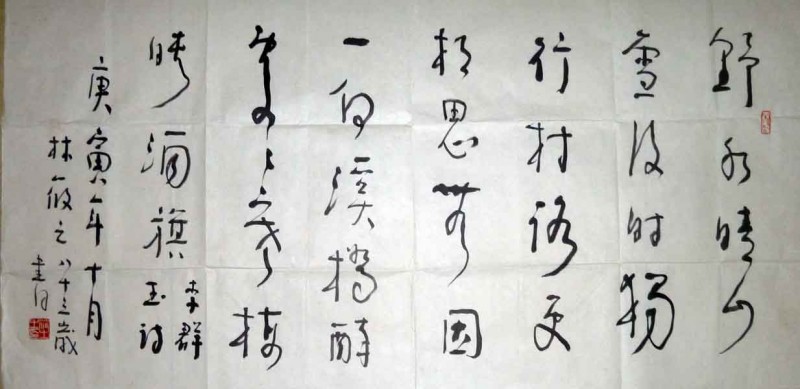 野水晴山
雪後時獨
行村路更
相思無因
一向溪橋醉
處々寒梅
映酒旗
李群
玉詩
庚寅年十月
林筱之八十三歲
書